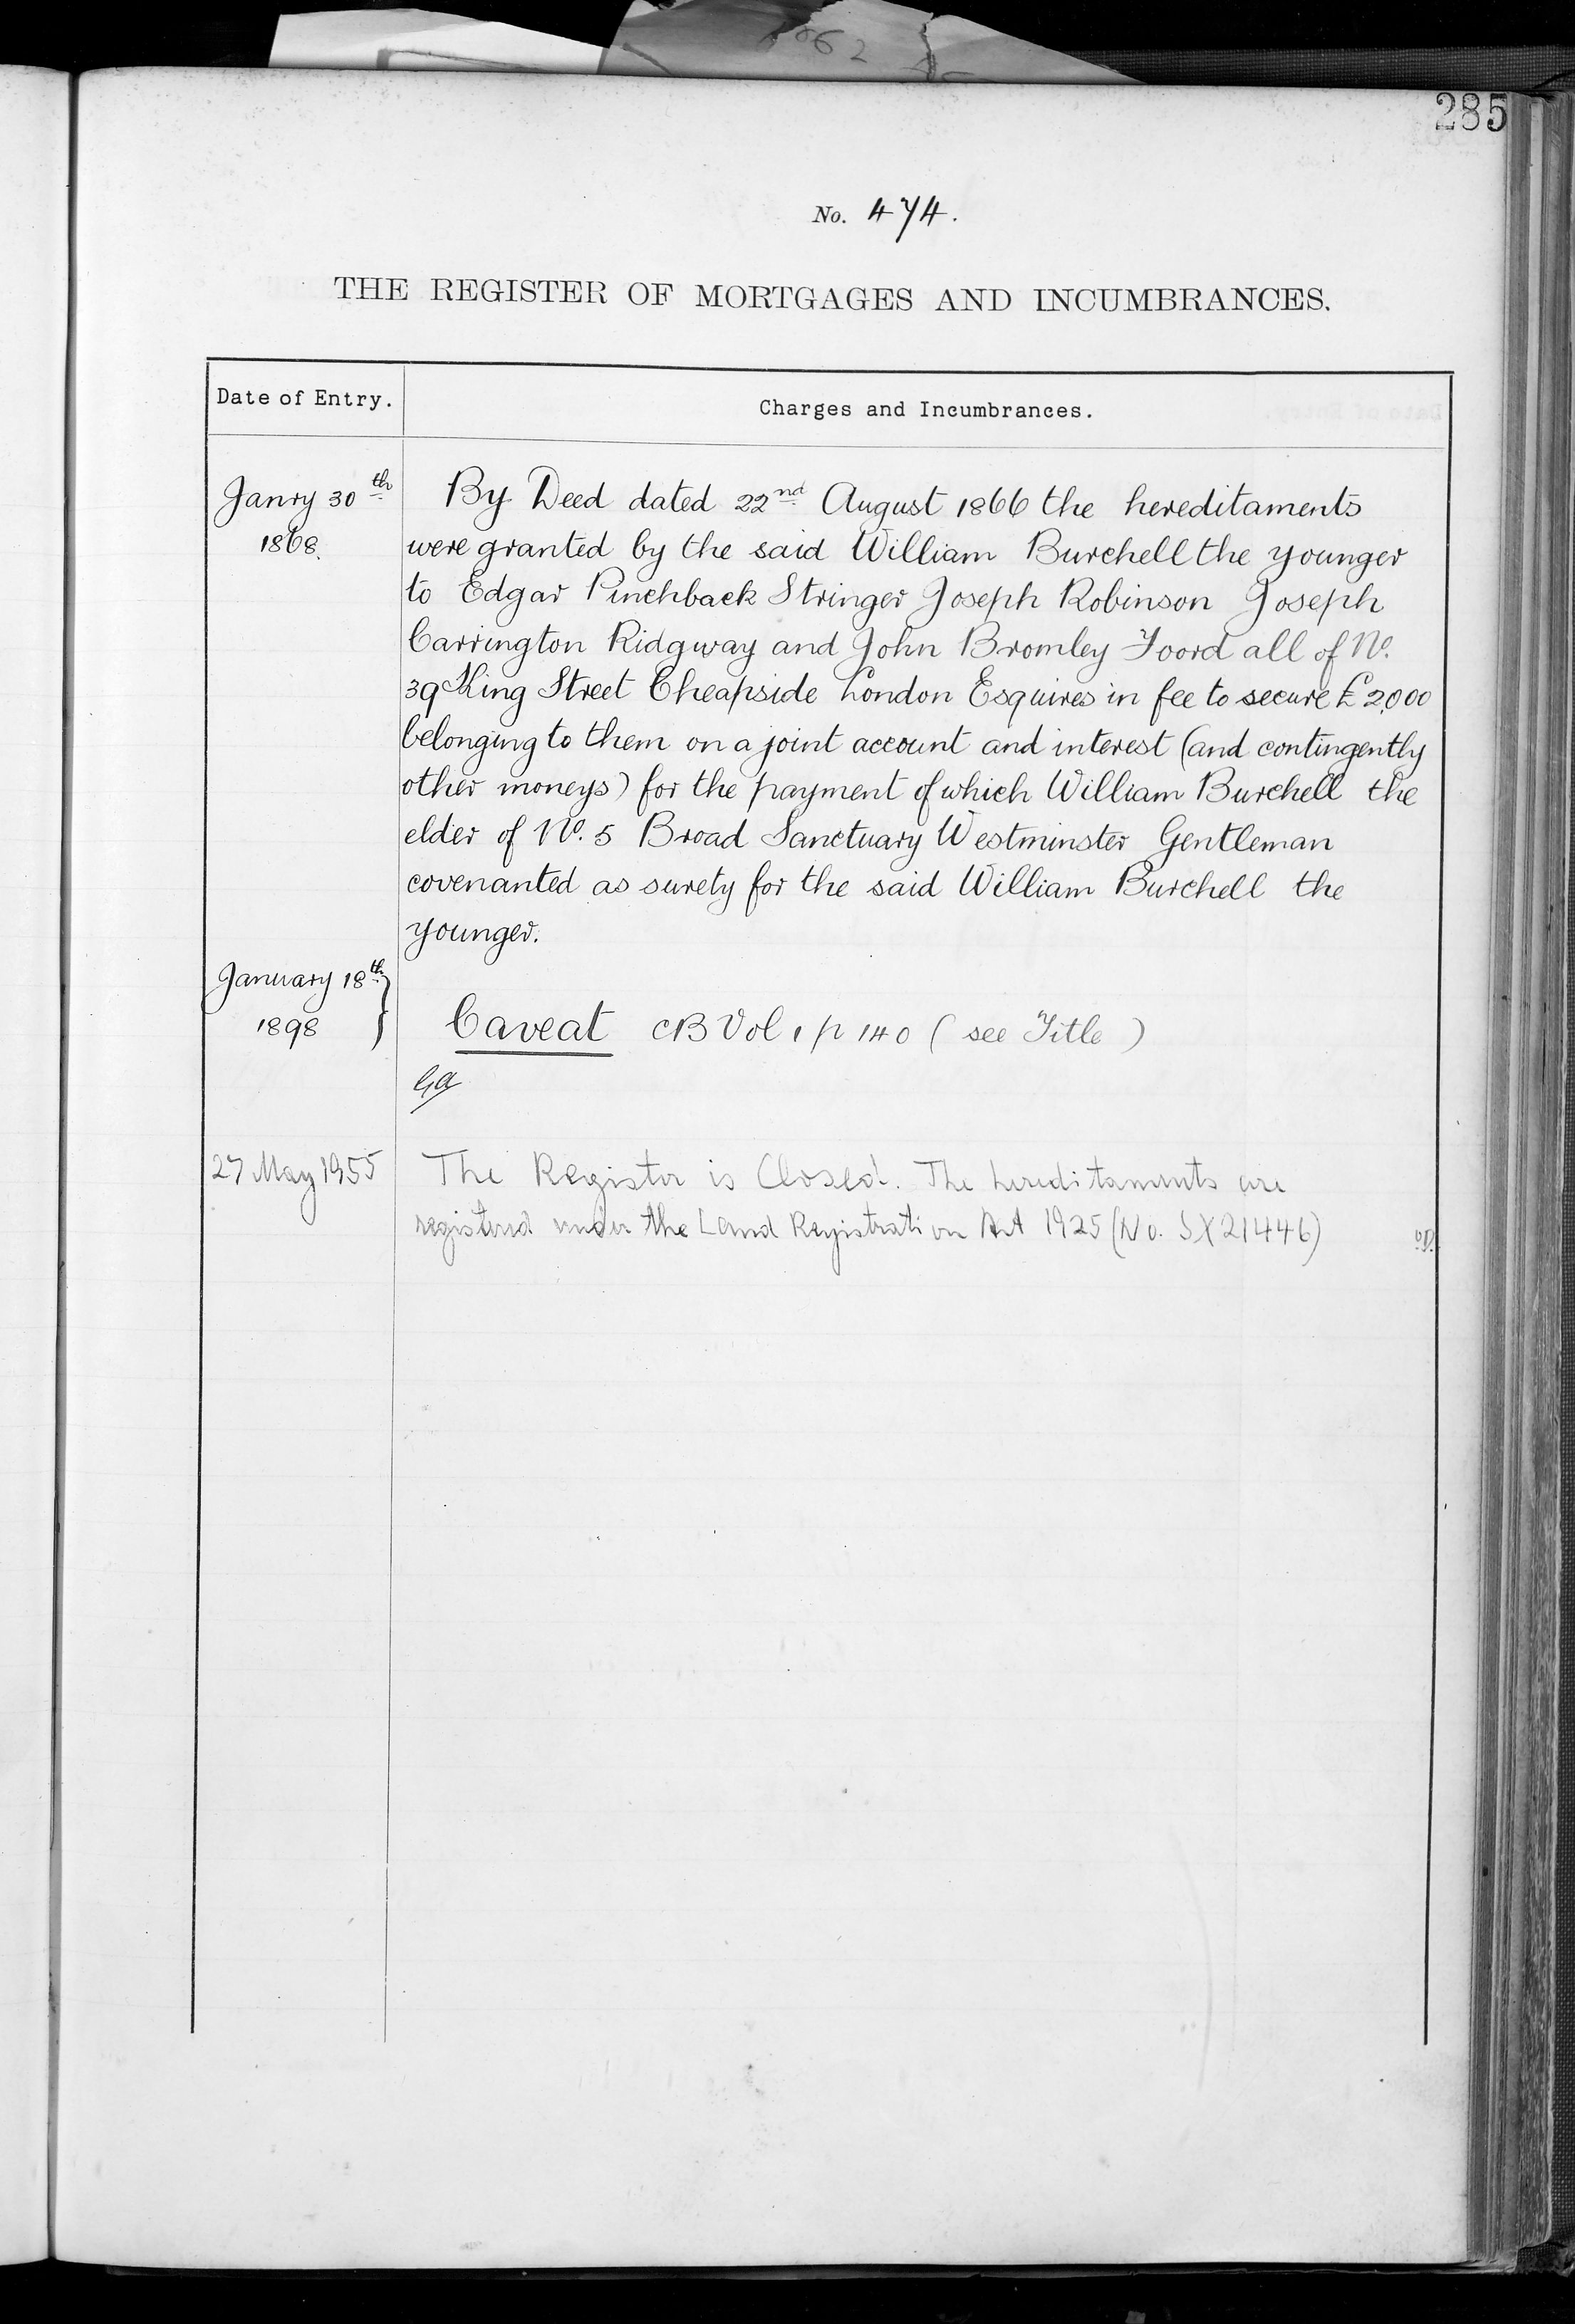 285
No. 474.
THE REGISTER OF MORTGAGES AND INCUMBRANCES.
Date of Entry.
Charges and Incumbrances.
Janry 30th
1868.
By Deed dated 22nd August 1866 the hereditaments
were granted by the said William Burchell the younger
to Edgar Pinchback Stringer Joseph Robinson Joseph
Carrington Ridgway and John Bromley Foord all of No.
39 King Street Cheapside London Esquires in fee to secure £2,000
belonging to them on a joint account and interest (and contingently
other moneys) for the payment of which William Burchell the
elder of No. 5 Broad Sanctuary Westminster Gentleman
covenanted as surety for the said William Burchell the
younger.
January 18th
1898
Caveat CB Vol 1 p 140 (see Title)
27 May 1955
The Register is Closed. The hereditaments are
registered under the Land Registration Act 1925 (No. SX21446)